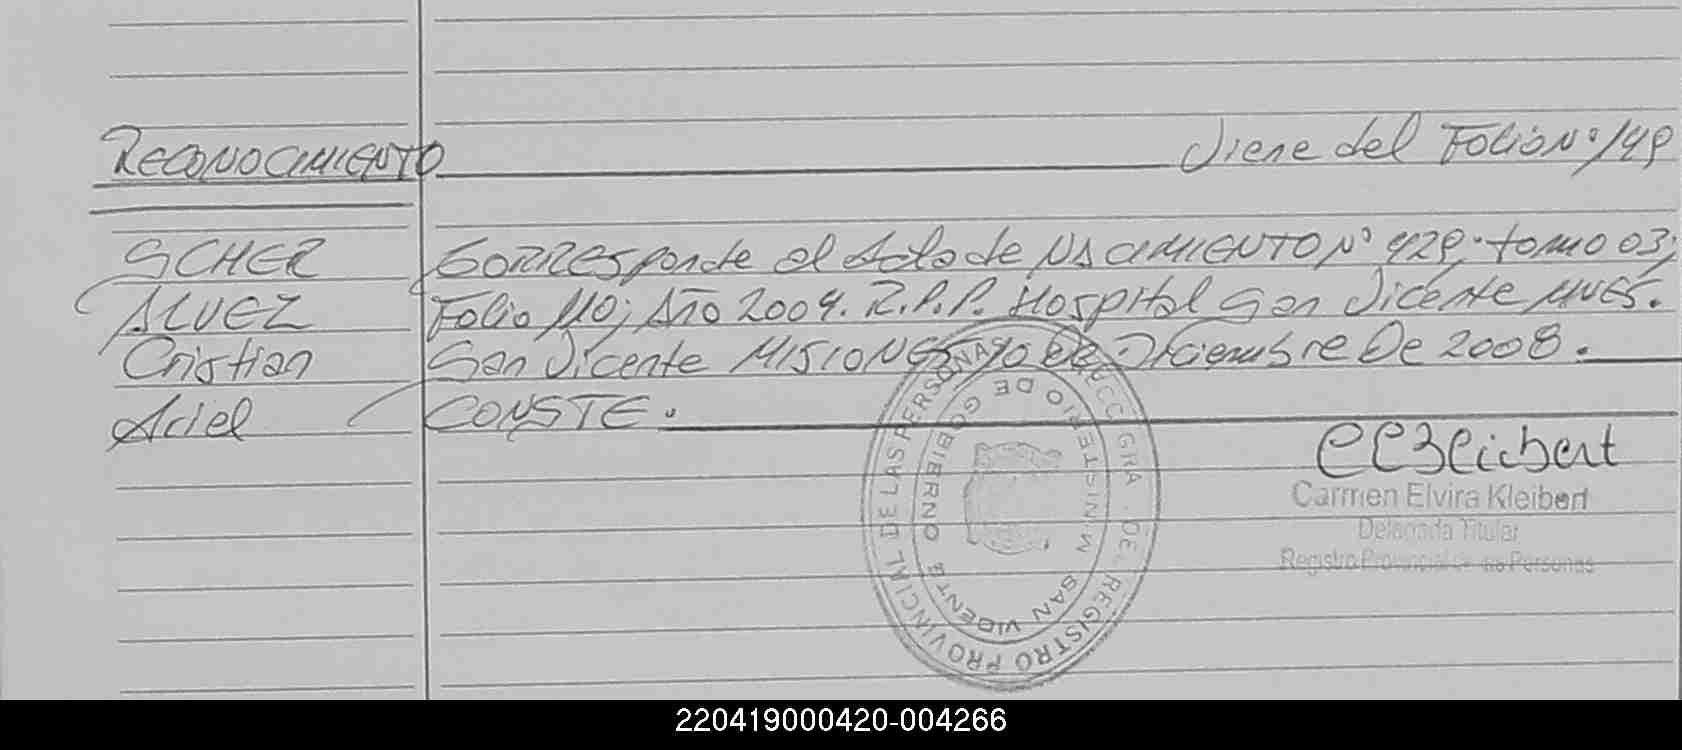 RECONOCIMIENTO Viene del Folio Nº 149
SCHER Corresponde al Acta de NACIMIENTO Nº 429; tomo 03;
ALVEZ Folio 110; Año 2004. R.P.P. Hospital San Vicente Mnes.
Cristian San Vicente MISIONES, 10 de Diciembre De 2008.
Ariel CONSTE.
Carmen Elvira Kleibert
Delegada Titular
Registro Provincial de las Personas
DIRECC. GRAL. DEL REGISTRO PROVINCIAL DE LAS PERSONAS
MINISTERIO DE GOBIERNO
SAN VICENTE
220419000420-004266